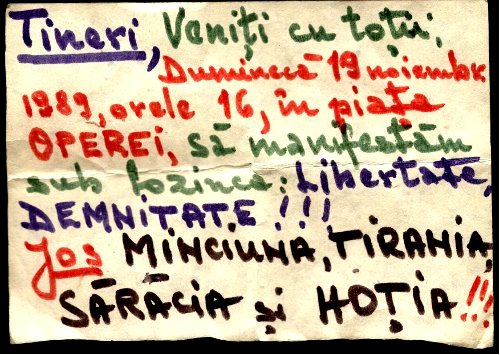 Tineri, Veniți cu toții,
Duminecă 19 noiembr.
1989, orele 16, în piața
OPEREI, să manifestăm
sub lozinca: Libertate,
DEMNITATE!!!
Jos MINCIUNA, TIRANIA,
SĂRĂCIA și HOȚIA!!!